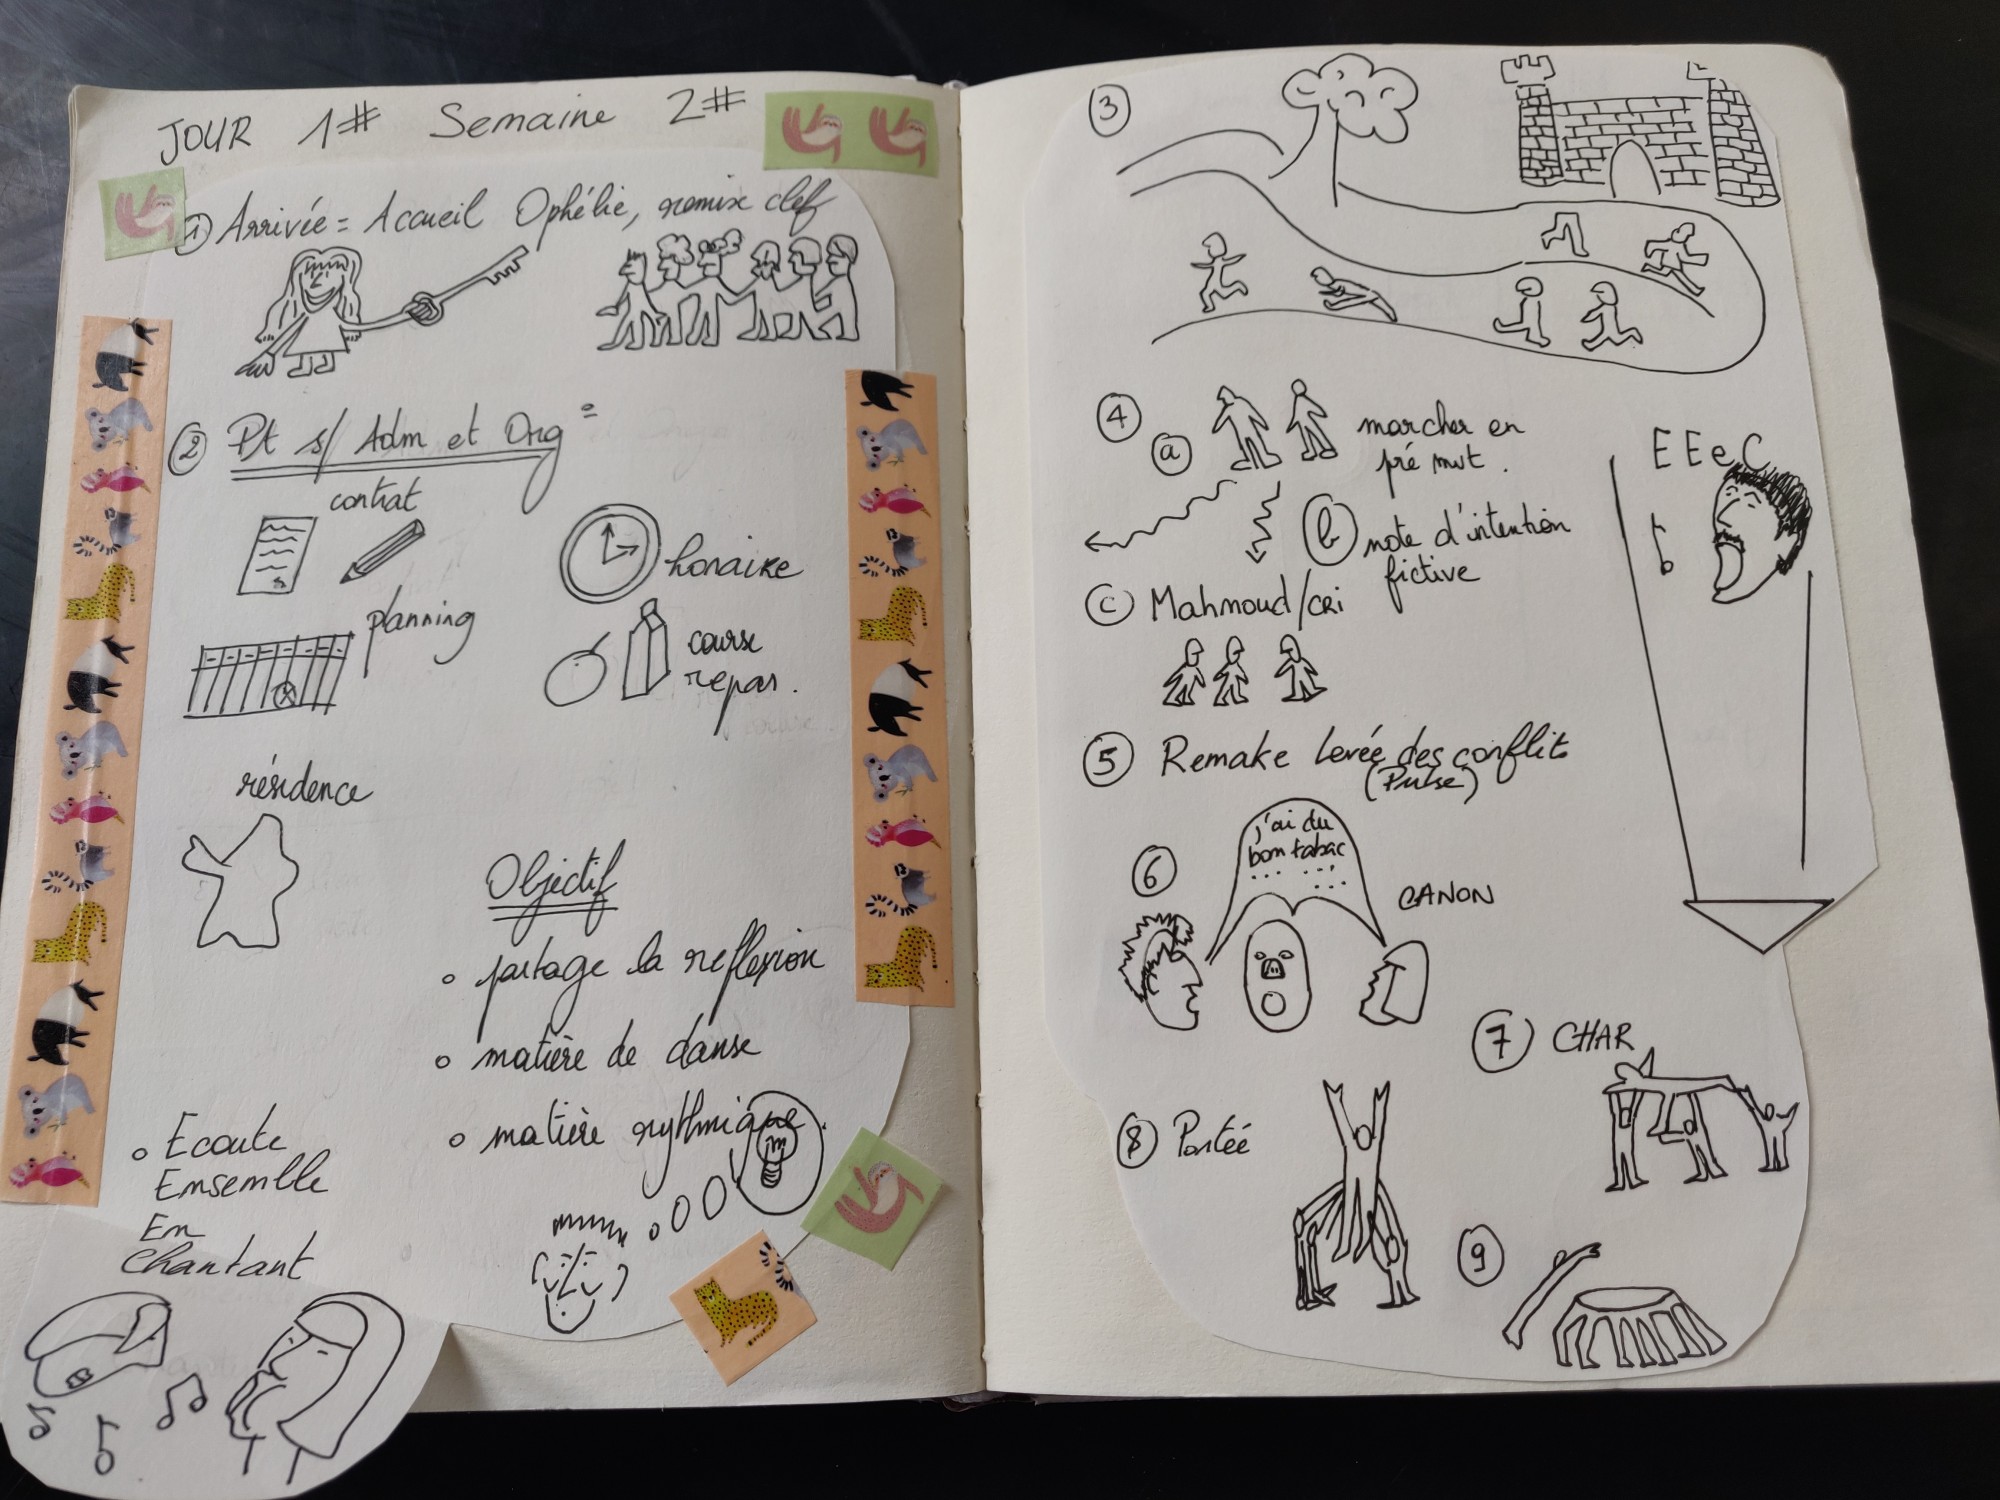 JOUR 1# Semaine 2#
1 Arrivée = Accueil Ophélie, remise clef
2 Pt s/ Adm et Org =
contrat
horaire
planning
course
repas.
résidence
Objectif
o partage la reflexion
o matière de danse
o matière rythmique.
o Ecoute
Ensemble
En
chantant
3
4
a
marcher en
pré mvt.
b note d'intention
fictive
c Mahmoud/cri
EEeC
5 Remake levée des conflits
(Pulse)
6
j'ai du
bon tabac
... ... ...
CANON
7 CHAR
8 Portée
9